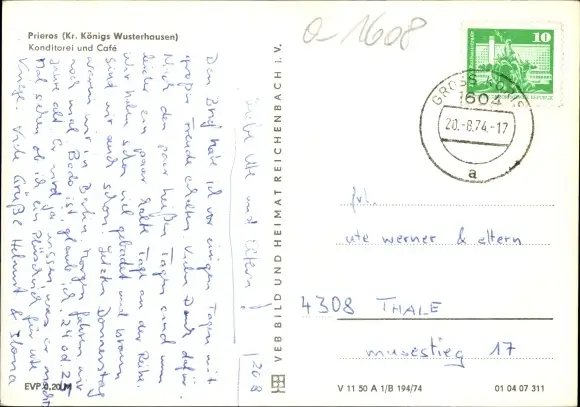 Prieros (Kr. Königs Wusterhausen)
Konditorei und Café
a 1608
10
GROSS KÖRIS
1604
20.-8.74.-17
a
Liebe Ute und Eltern!
Den Brief habe ich vor einigen Tagen mit
großer Freude erhalten. Vielen Dank dafür.
Nach den paar heißen Tagen sind nun
leider ein paar kalte Tage an der Reihe.
Wir haben schon viel gebadet und braun
sind wir auch schon. Letzten Donnerstag
waren wir in Berlin, morgen fahren wir
noch mal. Bodo ist, glaub ich, 24 od. 25
Jahre alt.
mal sehen ob ich ein für Ute
kriege. Viele Grüße Helmut & Ilona
VEB BILD UND HEIMAT REICHENBACH i. V.
frl.
ute werner & eltern
4308 THALE
musestieg 17
EVP 0,20 M
V 11 50 A 1/B 194/74
01 04 07 311